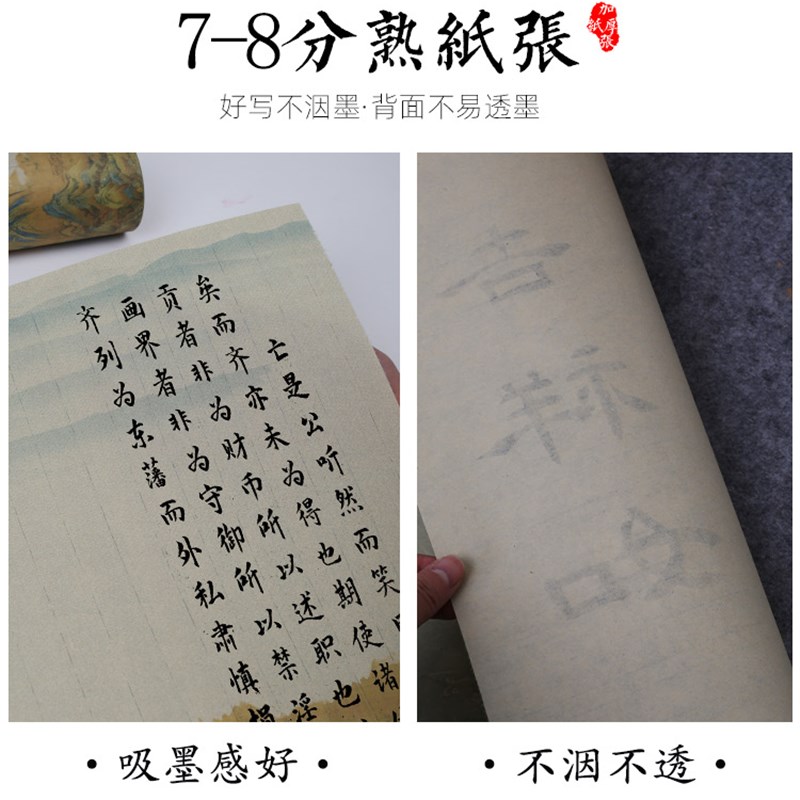 7-8分熟紙張
加厚
紙張
好写不洇墨·背面不易透墨
亡是公听然而笑曰
矣而齐亦未为得也期使诸
贡者非为财币所以述职也
画界者非为守御所以禁淫
齐列为东藩而外私肃慎捐
·吸墨感好·
·不洇不透·